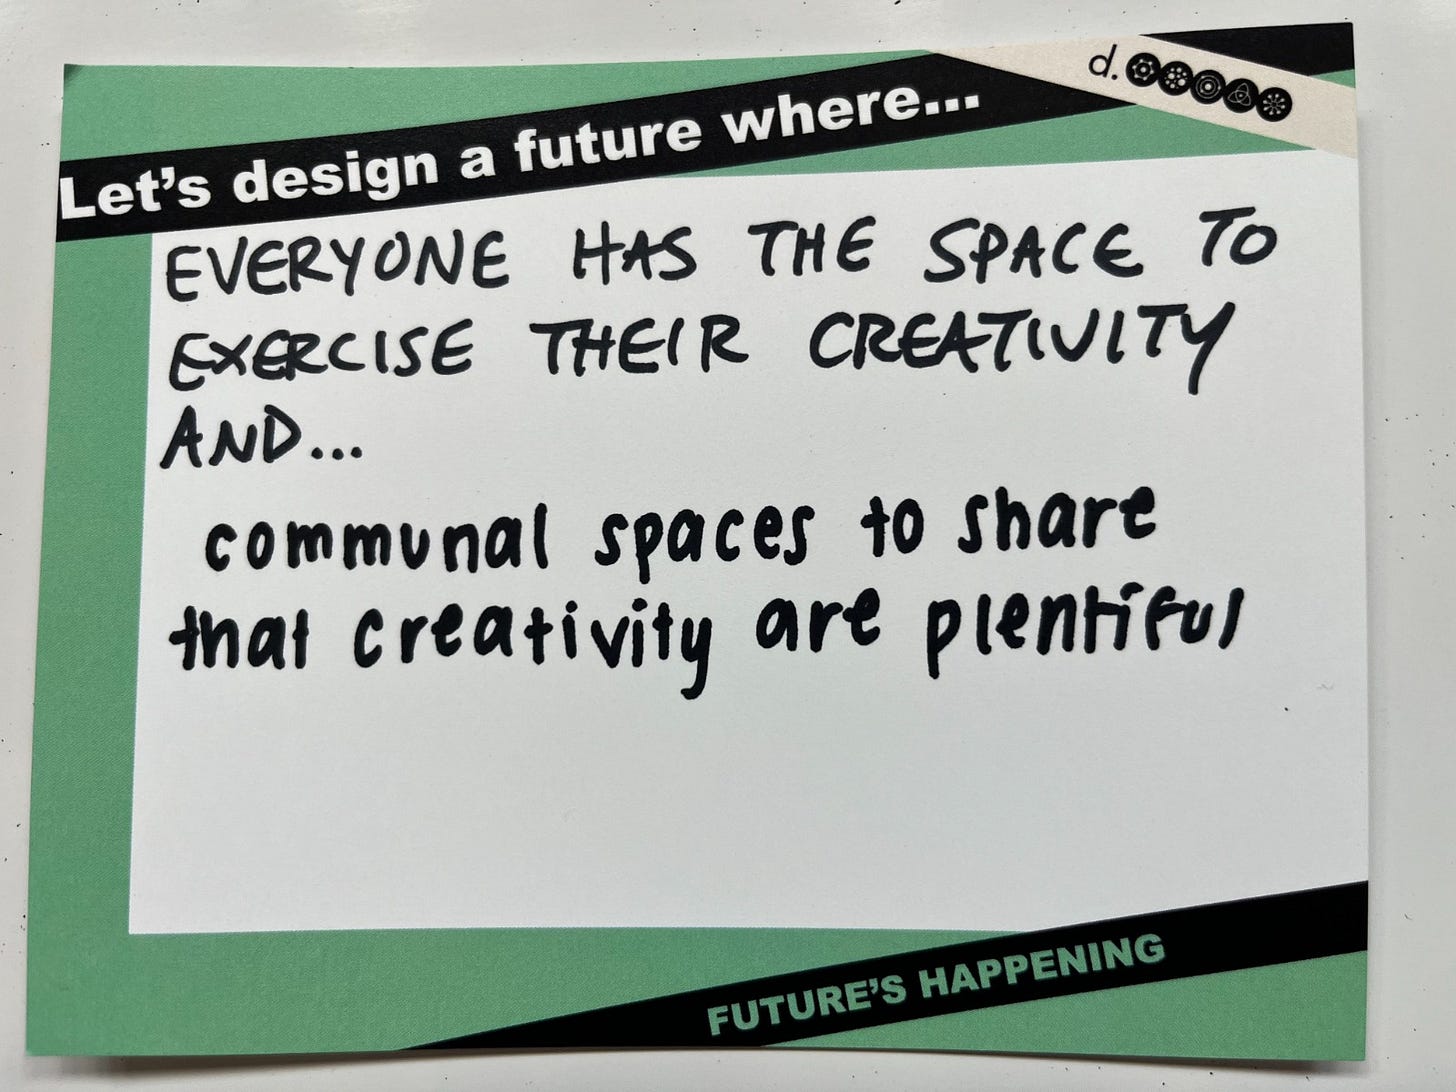 Let's design a future where...
d.
EVERYONE HAS THE SPACE TO
EXERCISE THEIR CREATIVITY
AND...
communal spaces to share
that creativity are plentiful
FUTURE'S HAPPENING